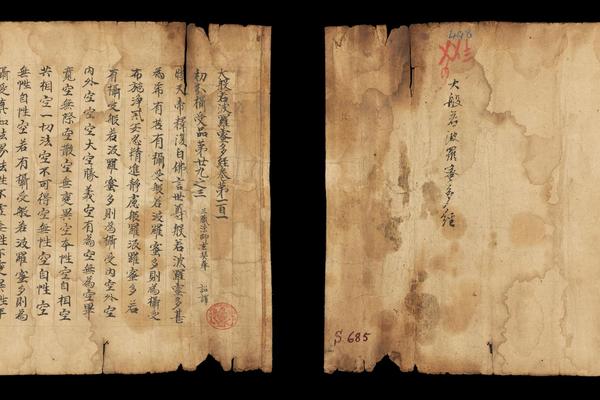 498
大般若波羅蜜多經
S. 685
大般若波羅蜜多經卷第一百一
初分攝受品第廿九之三 三藏法師玄奘奉 詔譯
時天帝釋復白佛言世尊般若波羅蜜多甚
為希有若有攝受般若波羅蜜多則為攝受
布施淨戒安忍精進靜慮般羅波羅蜜多若
有攝受般若波羅蜜多則為攝受內空外空
內外空空空大空勝義空有為空無為空畢
竟空無際空散空無變異空本性空自相空
共相空一切法空不可得空無性空自性空
無性自性空若有攝受般若波羅蜜多則為
攝受真如法界法性不虛妄性不變異性平